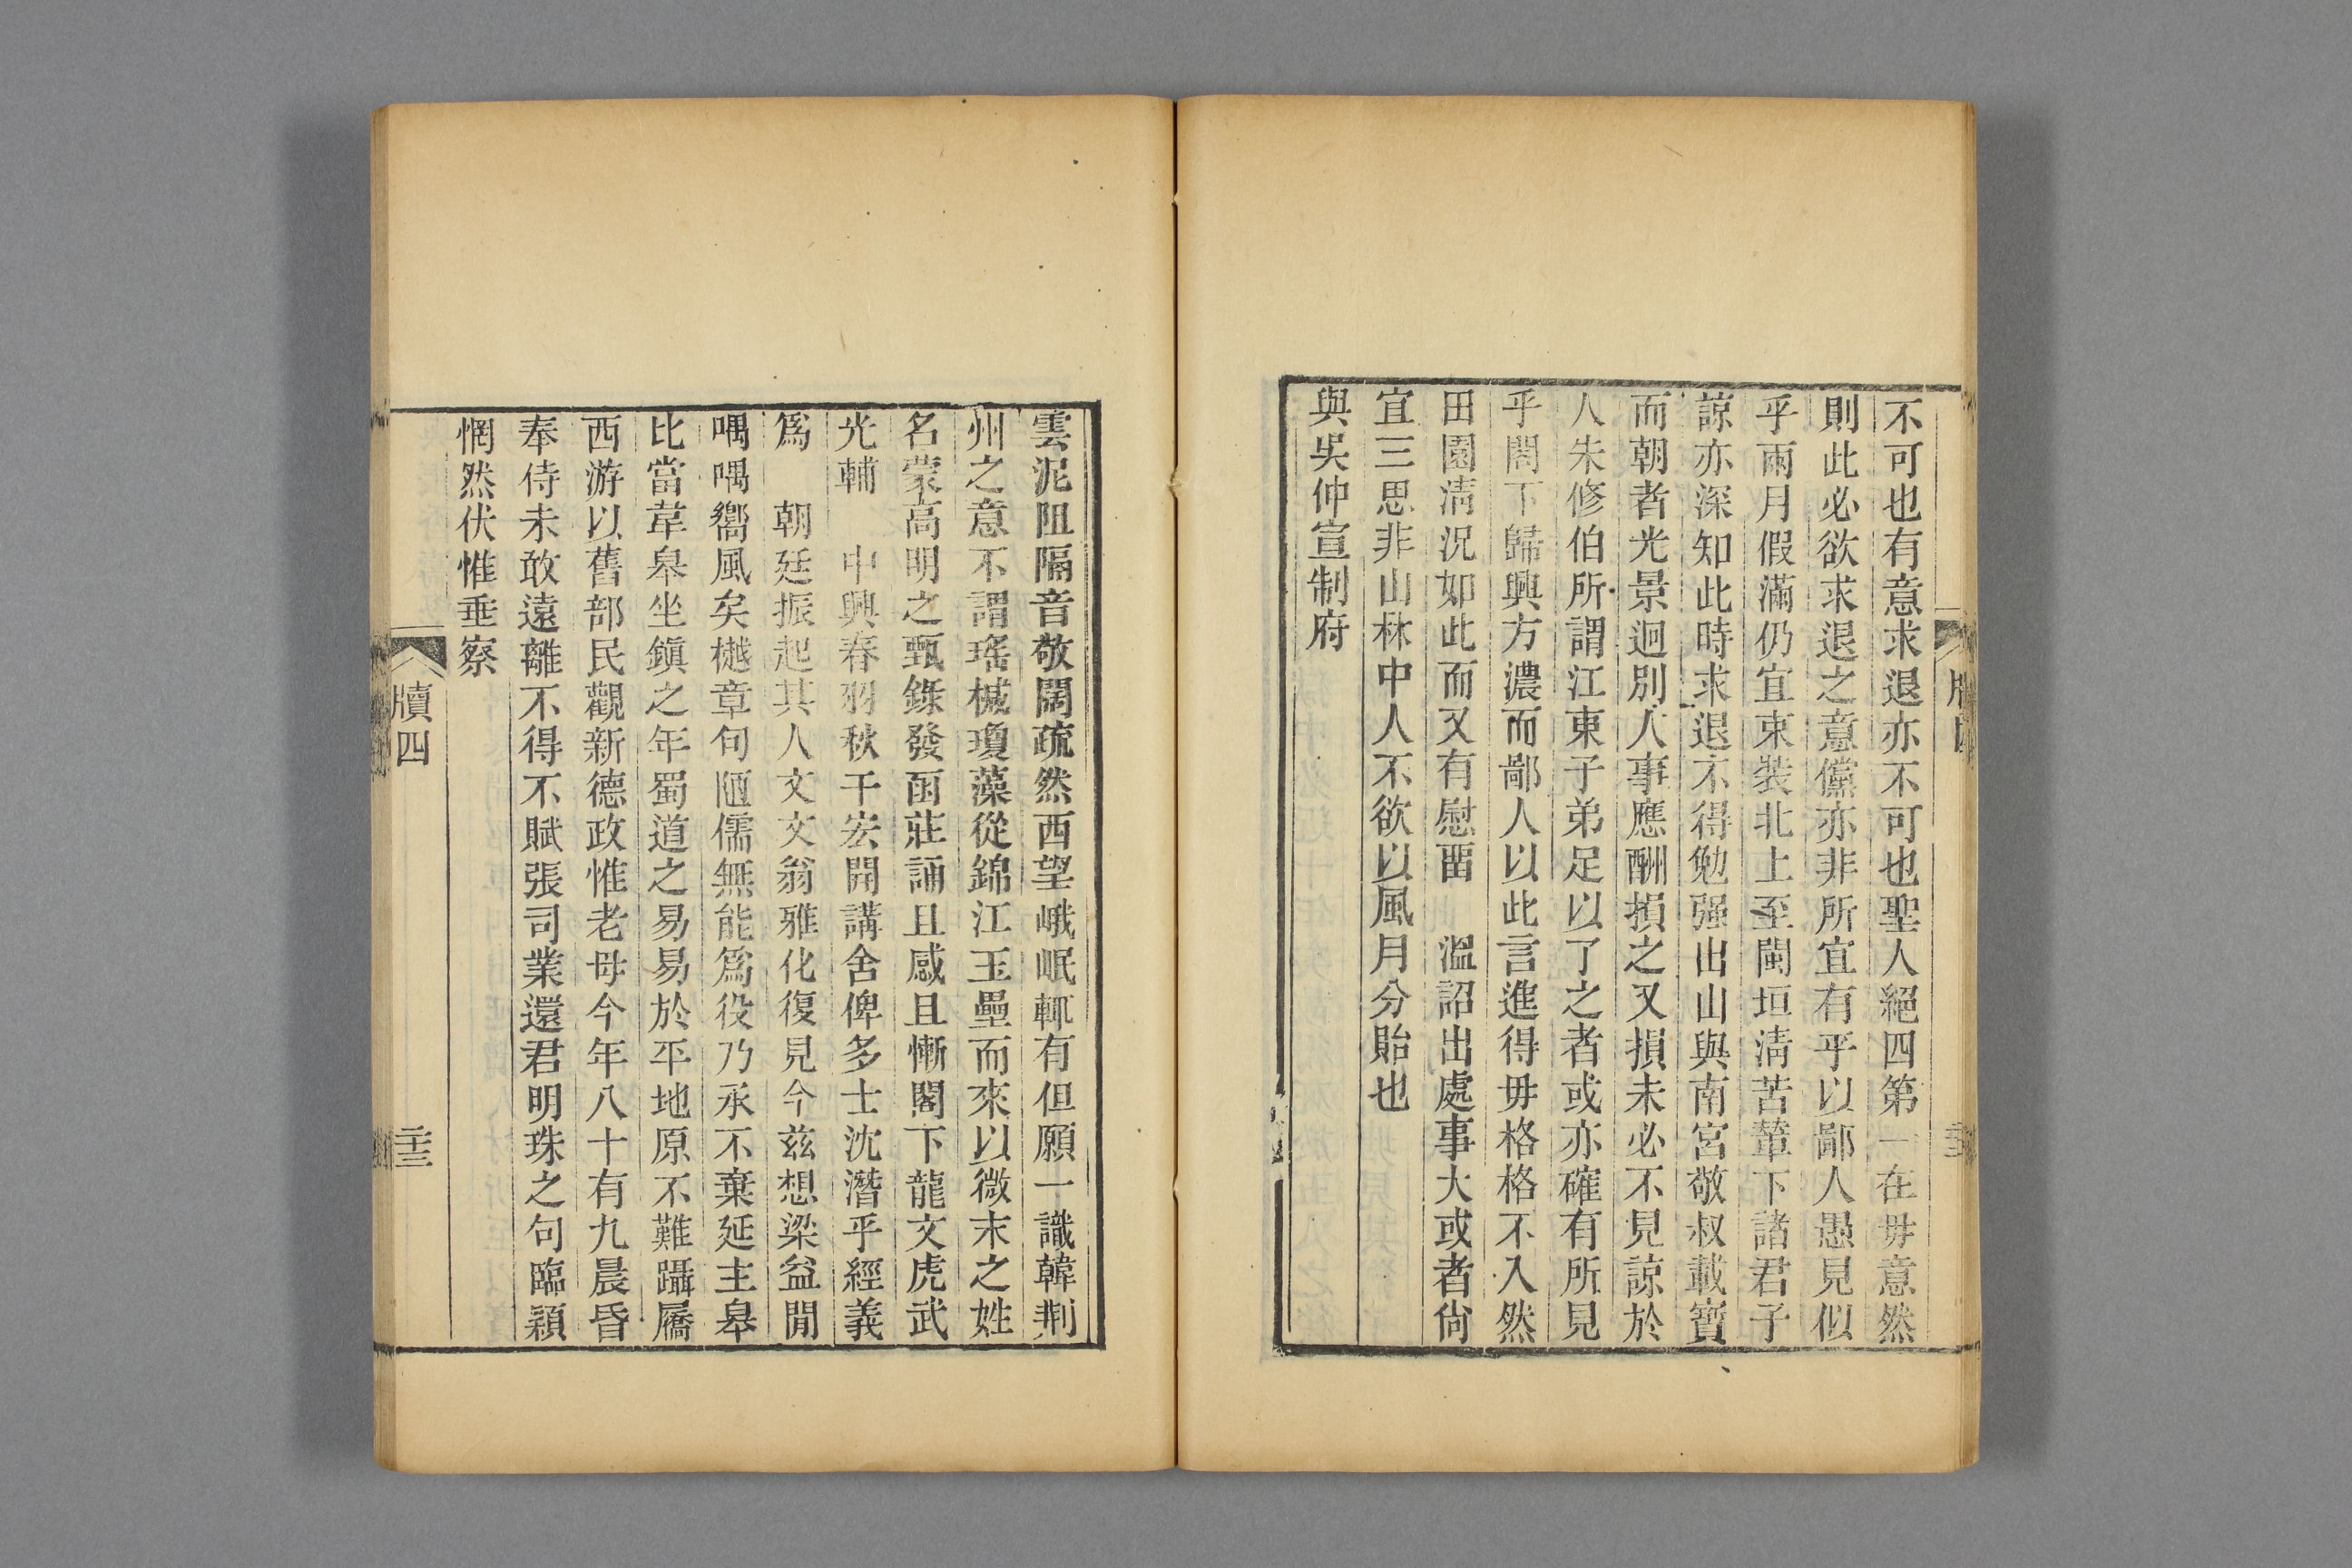 不可也有意求退亦不可也聖人絕四第一在毋意然
則此必欲求退之意儻亦非所宜有乎以鄙人愚見似
乎兩月假滿仍宜束裝北上至閩垣淸苦輦下諸君子
諒亦深知此時求退不得勉强出山與南宮敬叔載寶
而朝者光景迥別人事應酬損之又損未必不見諒於
人朱修伯所謂江東子弟足以了之者或亦確有所見
乎閣下歸興方濃而鄙人以此言進得毋格格不入然
田園淸況如此而又有慰畱 溫詔出處事大或者尙
宜三思非山林中人不欲以風月分貽也
與吳仲宣制府
雲泥阻隔音敬闊疏然西望峨岷輒有但願一識韓荆
州之意不謂瑤械瓊藻從錦江玉壘而來以微末之姓
名蒙高明之甄錄發函莊誦且感且慚閣下龍文虎武
光輔 中興春羽秋干宏開講舍俾多士沈潛乎經義
爲 朝廷振起其人文文翁雅化復見今茲想梁益閒
喁喁嚮風矣樾章句陋儒無能爲役乃承不棄延主皋
比當韋皋坐鎭之年蜀道之易易於平地原不難躡屩
西游以舊部民觀新德政惟老母今年八十有九晨昏
奉侍未敢遠離不得不賦張司業還君明珠之句臨穎
惘然伏惟垂察
牘四
二十三